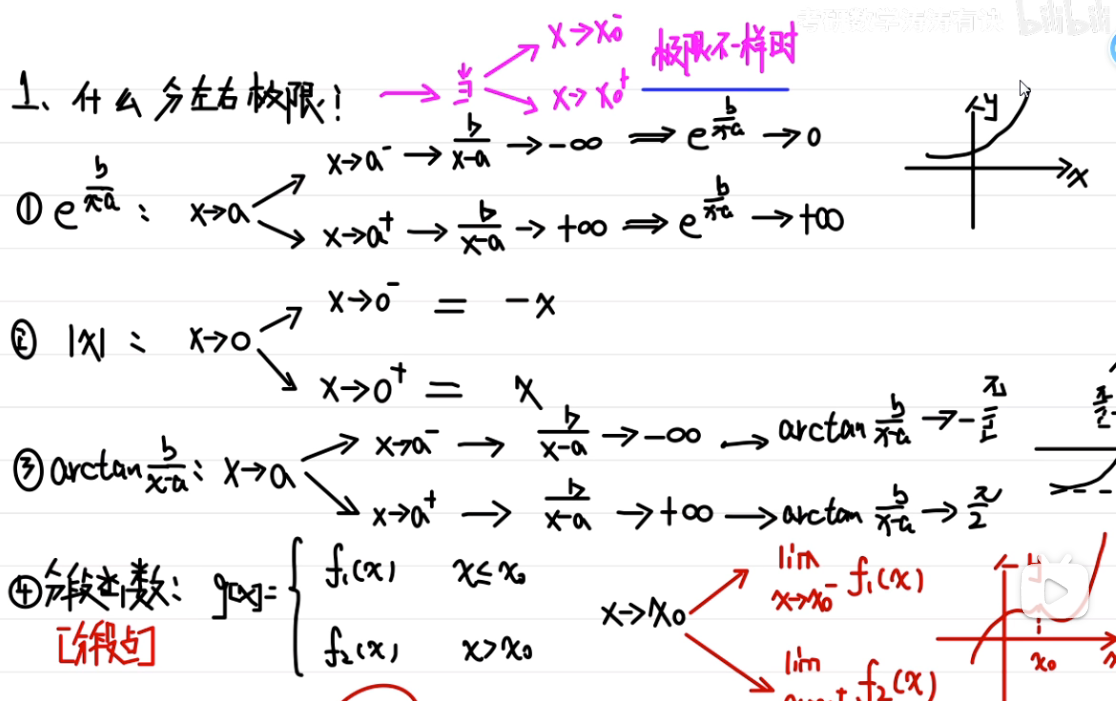 x→x₀⁻ 极限不一样时
1、什么分左右极限？ → 当 x→x₀⁺
① e^{b/(x-a)}： x→a
x→a⁻ → b/(x-a) → -∞ ⟹ e^{b/(x-a)} → 0
x→a⁺ → b/(x-a) → +∞ ⟹ e^{b/(x-a)} → +∞
y
x
② |x|： x→0
x→0⁻ = -x
x→0⁺ = x
③ arctan b/(x-a)： x→a
x→a⁻ → b/(x-a) → -∞ → arctan b/(x-a) → -π/2
x→a⁺ → b/(x-a) → +∞ → arctan b/(x-a) → π/2
π/2
④ 分段函数： g(x)= { f₁(x) x≤x₀
f₂(x) x>x₀
[分段点]
x→x₀
lim x→x₀⁻ f₁(x)
lim f₂(x)
y
x₀
bilibili